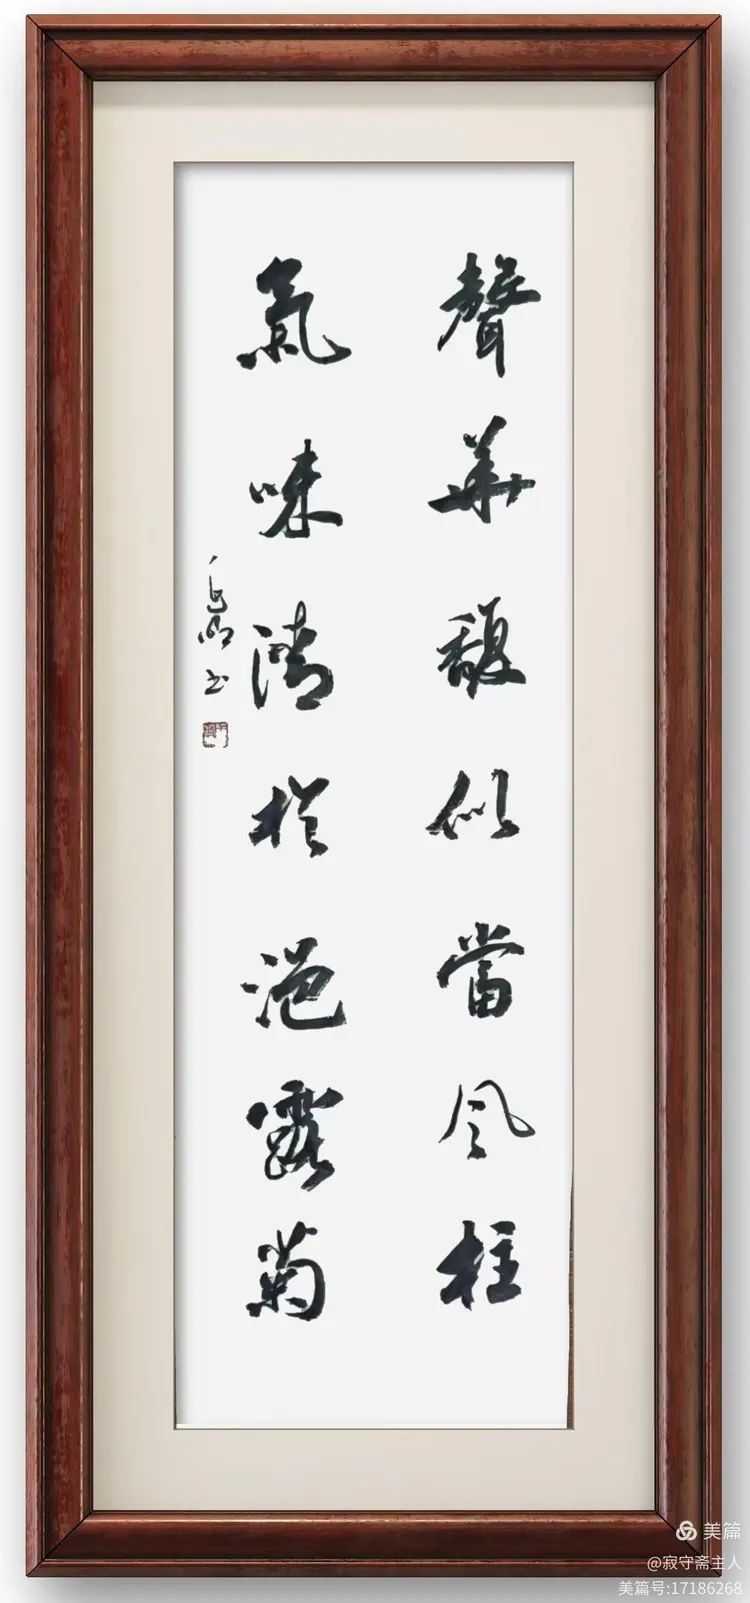 聲華馥似當風柱
氣味清於浥露菊
书
美篇
@寂守斋主人
美篇号:17186268